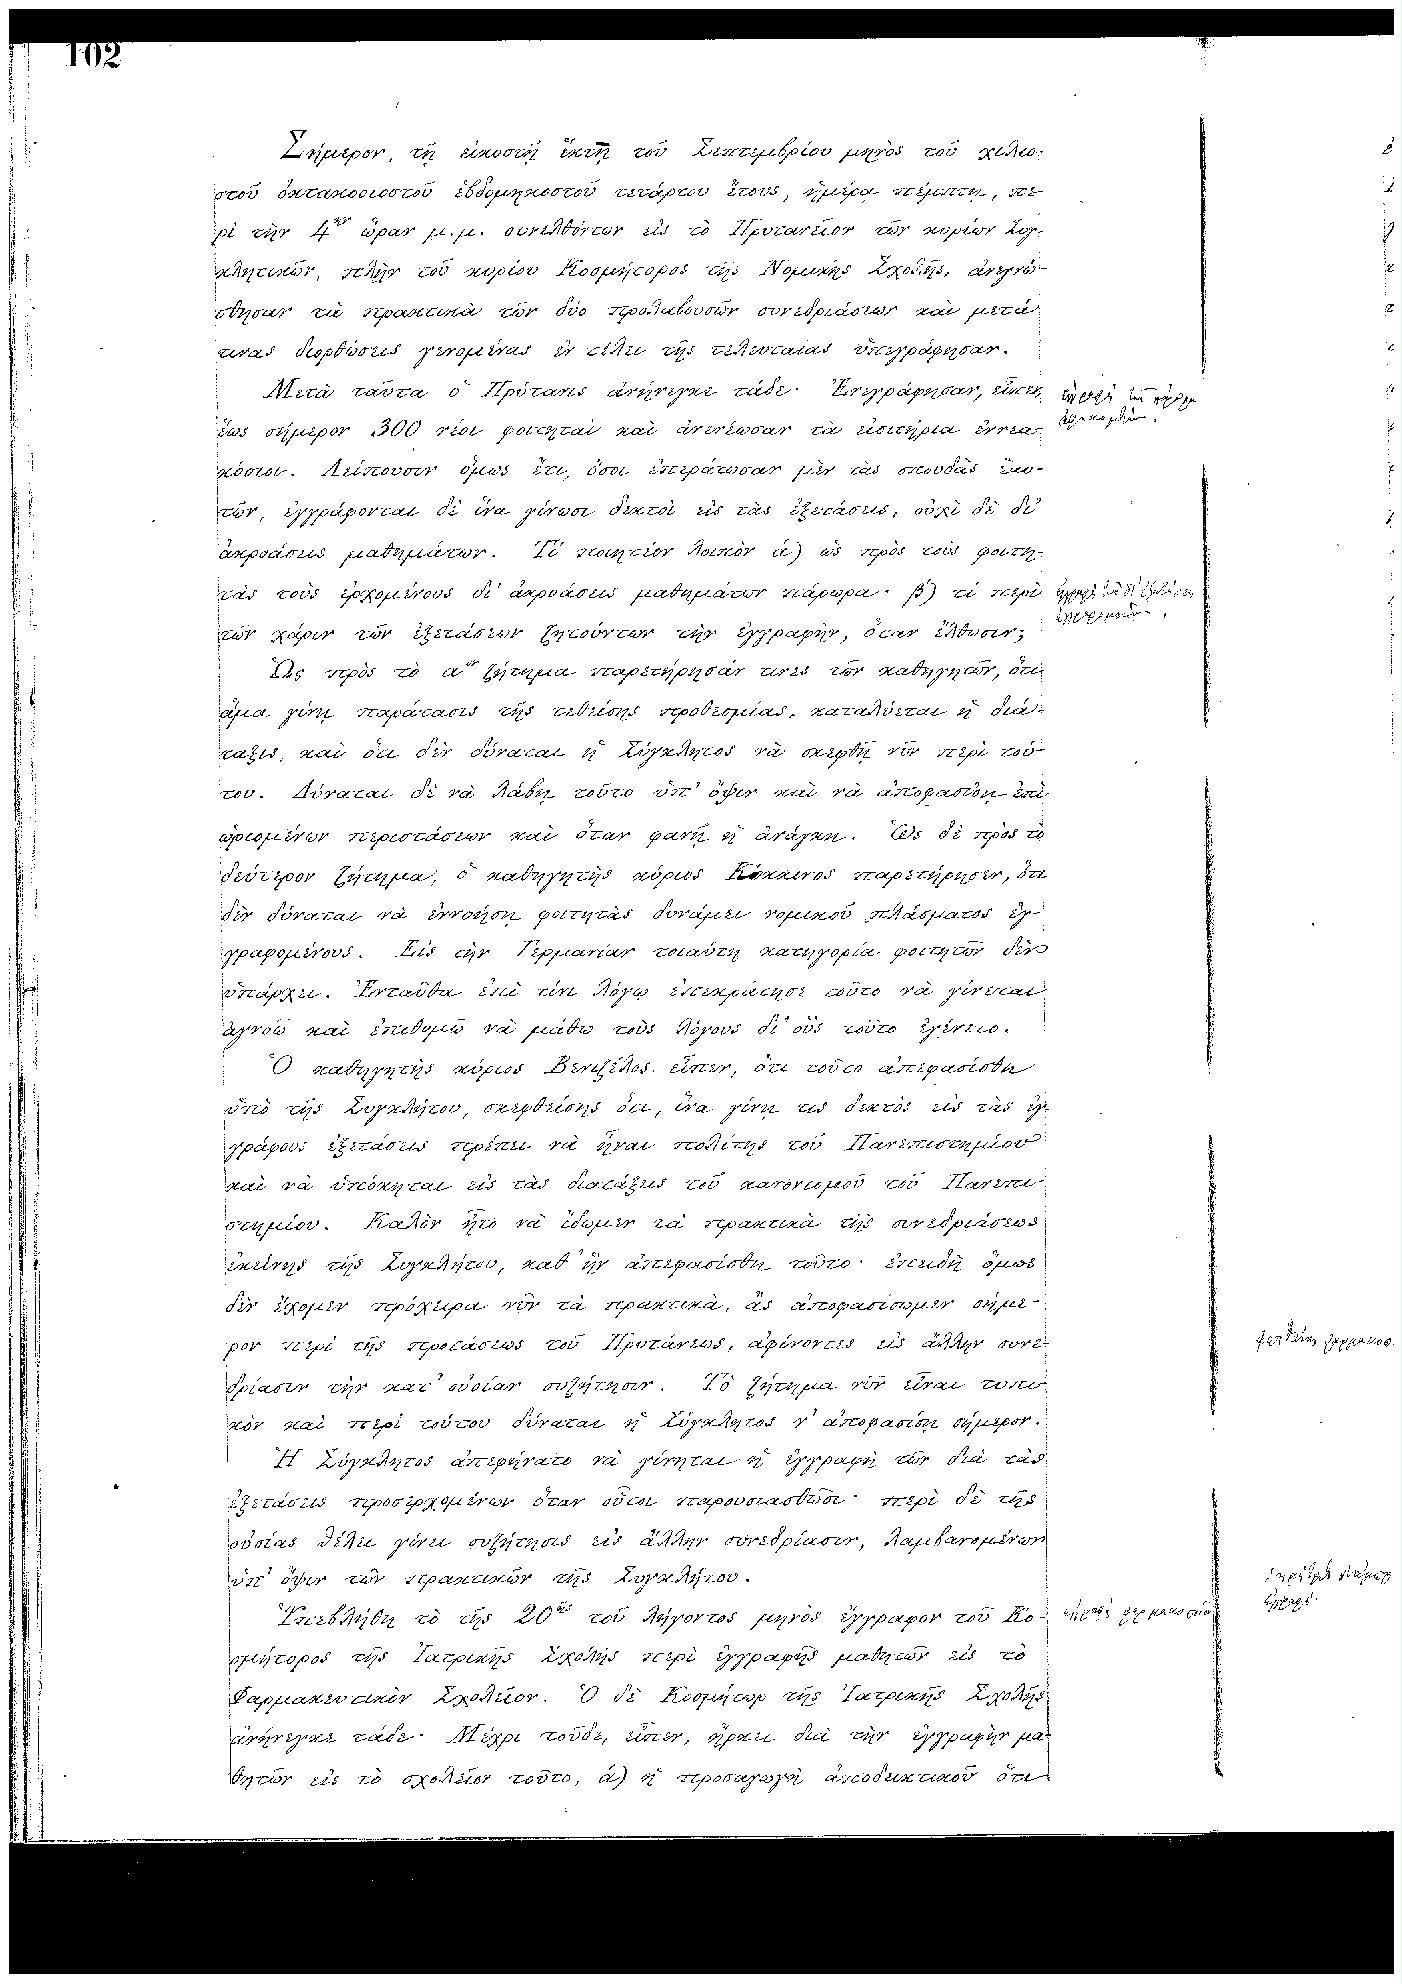 102
Σήμερον, τῇ εἰκοστῇ ἕκτῃ τοῦ Σεπτεμβρίου μηνὸς τοῦ χιλιο-
στοῦ ὀκτακοσιοστοῦ ἑβδομηκοστοῦ τετάρτου ἔτους, ἡμέρᾳ πέμπτῃ, πε-
ρὶ τὴν 4ην ὥραν μ.μ. συνελθόντων εἰς τὸ Πρυτανεῖον τῶν κυρίων Συγ-
κλητικῶν, πλὴν τοῦ κυρίου Κοσμήτορος τῆς Νομικῆς Σχολῆς, ἀνεγνώ-
σθησαν τὰ πρακτικὰ τῶν δύο προλαβουσῶν συνεδριάσεων καὶ μετά
τινας διορθώσεις γενομένας ἐν τέλει τῆς τελευταίας ὑπεγράφησαν.
Μετὰ ταῦτα ὁ Πρύτανις ἀνήνεγκε τάδε· Ἐνεγράφησαν, εἶπεν,
ἕως σήμερον 300 νέοι φοιτηταὶ καὶ ἀνενέωσαν τὰ εἰσιτήρια ἐννεα-
κόσιοι. Λείπουσιν ὅμως ἔτι, ὅσοι ἐπεράτωσαν μὲν τὰς σπουδὰς ἑαυ-
τῶν, ἐγγράφονται δὲ ἵνα γίνωσι δεκτοὶ εἰς τὰς ἐξετάσεις, οὐχὶ δὲ δι'
ἀκροάσεις μαθημάτων. Τί ποιητέον λοιπὸν ά) ὡς πρὸς τοὺς φοιτη-
τὰς τοὺς ἐρχομένους δι' ἀκροάσεις μαθημάτων πάρωρα· β') τί περὶ
τῶν χάριν τῶν ἐξετάσεων ζητούντων τὴν ἐγγραφήν, ὅταν ἔλθωσιν;
Ὡς πρὸς τὸ αον ζήτημα παρετήρησάν τινες τῶν καθηγητῶν, ὅτι
ἅμα γίνῃ παράτασις τῆς τεθείσης προθεσμίας, καταλύεται ἡ διά-
ταξις, καὶ ὅτι δὲν δύναται ἡ Σύγκλητος νὰ σκεφθῇ νῦν περὶ τού-
του. Δύναται δὲ νὰ λάβῃ τοῦτο ὑπ' ὄψιν καὶ νὰ ἀποφασίσῃ ἐπὶ
ὡρισμένων περιστάσεων καὶ ὅταν φανῇ ἡ ἀνάγκη. Ὡς δὲ πρὸς τὸ
δεύτερον ζήτημα, ὁ καθηγητὴς κύριος Κόκκινος παρετήρησεν, ὅτι
δὲν δύναται νὰ ἐννοήσῃ φοιτητὰς δυνάμει νομικοῦ πλάσματος ἐγ-
γραφομένους. Εἰς τὴν Γερμανίαν τοιαύτη κατηγορία φοιτητῶν δὲν
ὑπάρχει. Ἐνταῦθα ἐπὶ τίνι λόγῳ ἐπεκράτησε τοῦτο νὰ γίνεται
ἀγνοῶ καὶ ἐπιθυμῶ νὰ μάθω τοὺς λόγους δι' οὓς τοῦτο ἐγένετο.
Ὁ καθηγητὴς κύριος Βενιζέλος εἶπεν, ὅτι τοῦτο ἀπεφασίσθη
ὑπὸ τῆς Συγκλήτου, σκεφθείσης ὅτι, ἵνα γίνῃ τις δεκτὸς εἰς τὰς ἐγ-
γράφους ἐξετάσεις πρέπει νὰ ἦναι πολίτης τοῦ Πανεπιστημίου
καὶ νὰ ὑπόκηται εἰς τὰς διατάξεις τοῦ κανονισμοῦ τοῦ Πανεπι-
στημίου. Καλὸν ἦτο νὰ ἴδωμεν τὰ πρακτικὰ τῆς συνεδριάσεως
ἐκείνης τῆς Συγκλήτου, καθ' ἣν ἀπεφασίσθη τοῦτο· ἐπειδὴ ὅμως
δὲν ἔχομεν πρόχειρα νῦν τὰ πρακτικά, ἂς ἀποφασίσωμεν σήμε-
ρον περὶ τῆς προτάσεως τοῦ Πρυτάνεως, ἀφίνοντες εἰς ἄλλην συνε-
δρίασιν τὴν κατ' οὐσίαν συζήτησιν. Τὸ ζήτημα νῦν εἶναι τυπι-
κὸν καὶ περὶ τούτου δύναται ἡ Σύγκλητος ν' ἀποφασίσῃ σήμερον.
Ἡ Σύγκλητος ἀπεφήνατο νὰ γίνηται ἡ ἐγγραφὴ τῶν διὰ τὰς
ἐξετάσεις προσερχομένων ὅταν οὗτοι παρουσιασθῶσι· περὶ δὲ τῆς
οὐσίας θέλει γίνει συζήτησις εἰς ἄλλην συνεδρίασιν, λαμβανομένων
ὑπ' ὄψιν τῶν πρακτικῶν τῆς Συγκλήτου.
Ὑπεβλήθη τὸ τῆς 20ης τοῦ λήγοντος μηνὸς ἔγγραφον τοῦ Κο-
σμήτορος τῆς Ἰατρικῆς Σχολῆς περὶ ἐγγραφῆς μαθητῶν εἰς τὸ
Φαρμακευτικὸν Σχολεῖον. Ὁ δὲ Κοσμήτωρ τῆς Ἰατρικῆς Σχολῆς
ἀνήνεγκε τάδε· Μέχρι τοῦδε, εἶπεν, ἤρκει διὰ τὴν ἐγγραφὴν μα-
θητῶν εἰς τὸ σχολεῖον τοῦτο, ά) ἡ προσαγωγὴ ἀποδεικτικοῦ ὅτι